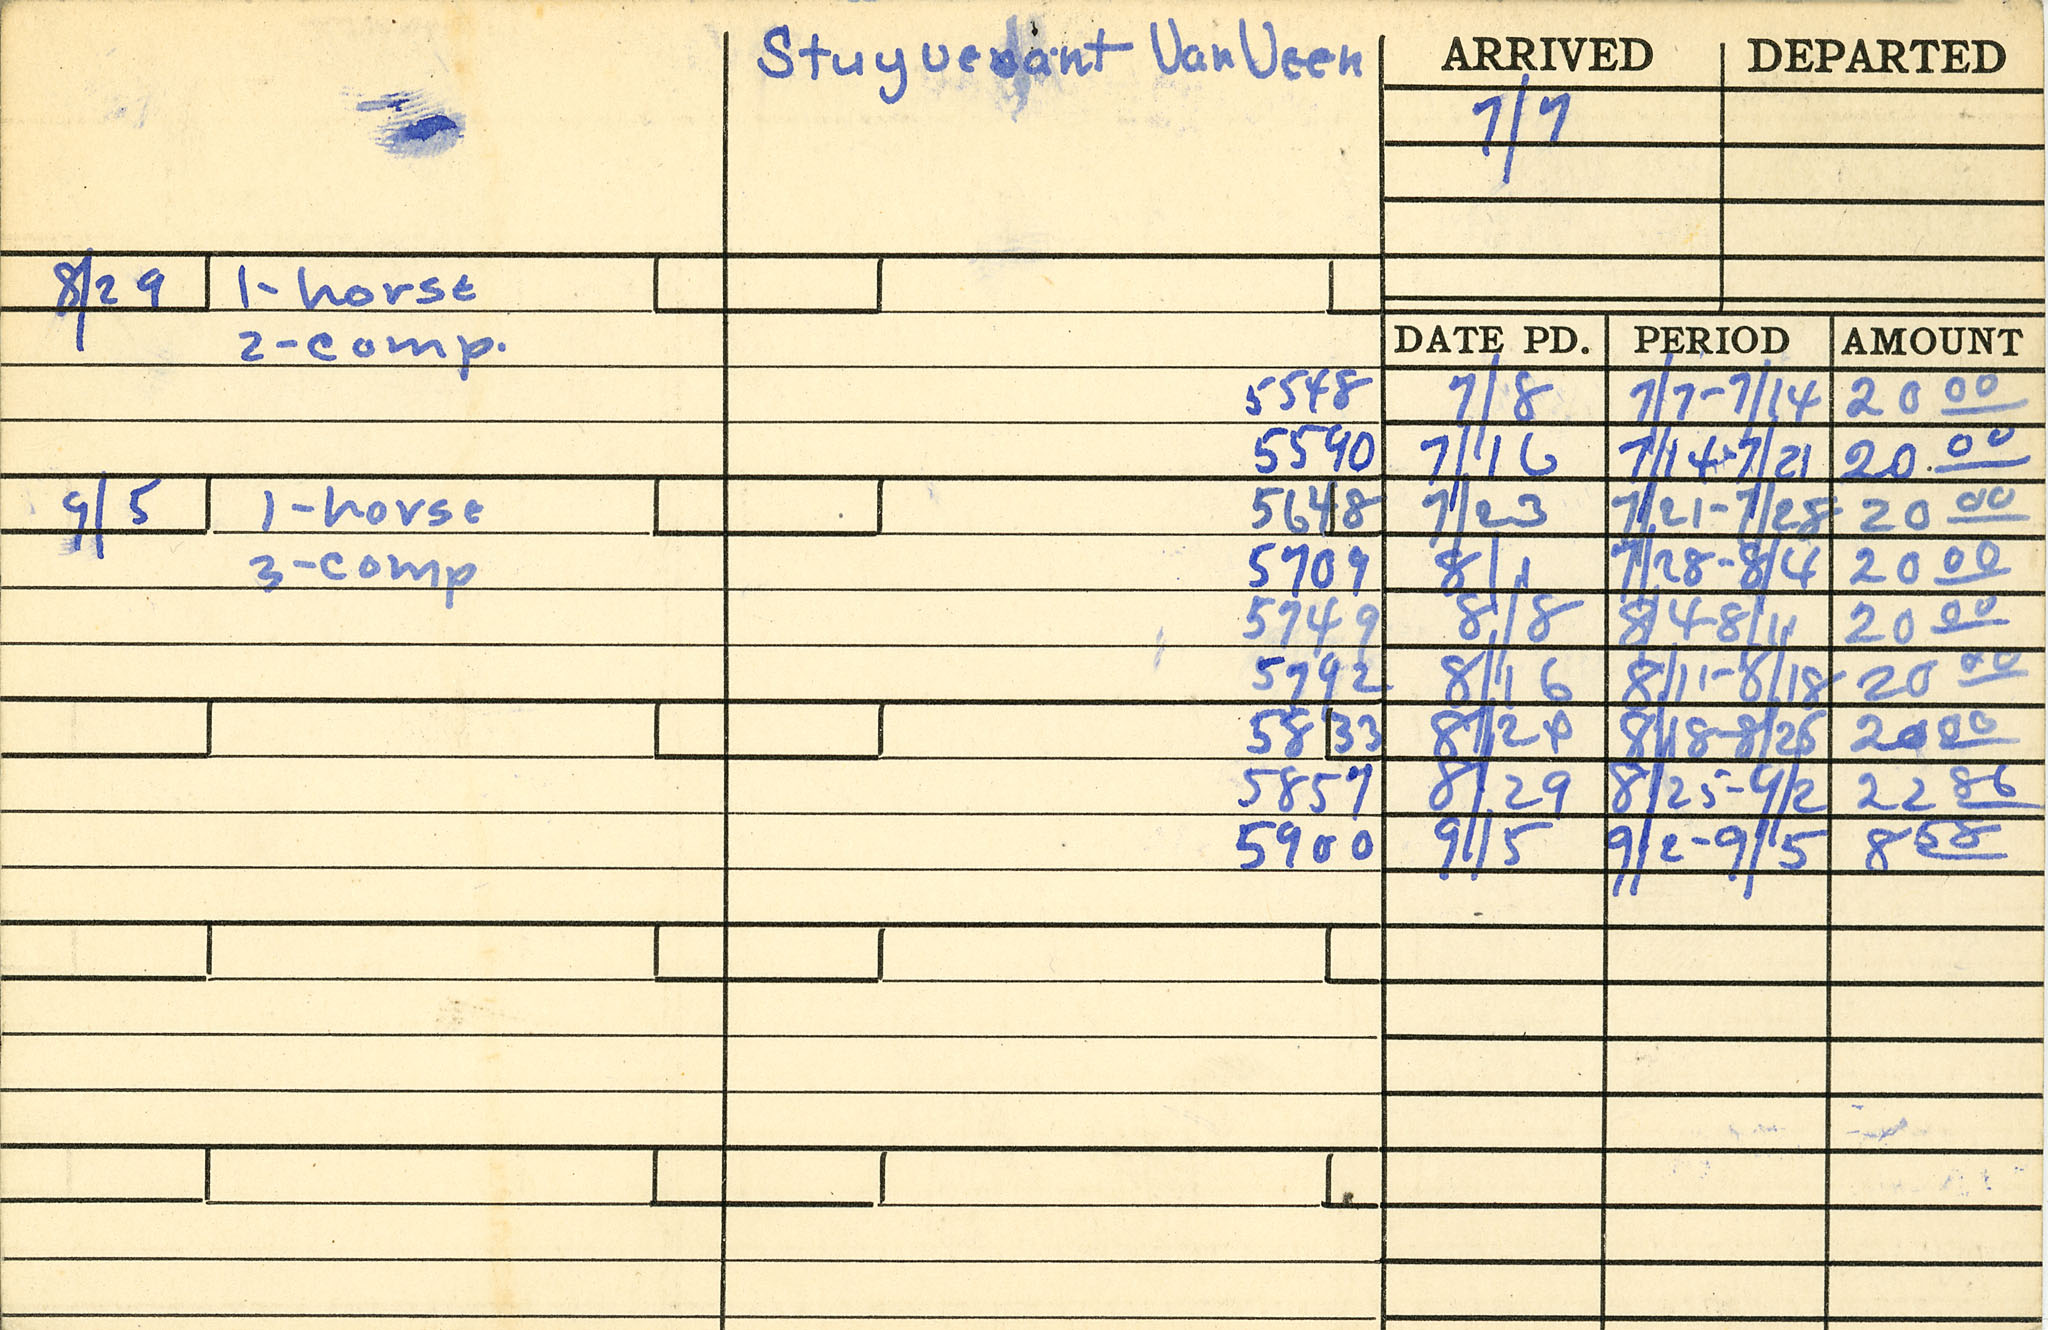 Stuyvesant VanVeen
ARRIVED DEPARTED
7/7
8/29 1-horse
2-comp.
DATE PD. PERIOD AMOUNT
5548 7/8 7/7-7/14 20 00
5590 7/16 7/14-7/21 20.00
9/5 1-horse 5648 7/23 7/21-7/28 20 00
3-comp 5709 8/1 7/28-8/4 20 00
5749 8/8 8/4-8/11 20 00
5792 8/16 8/11-8/18 20 00
5833 8/24 8/18-8/25 20 00
5857 8/29 8/25-9/2 22 86
5900 9/5 9/2-9/5 8 58